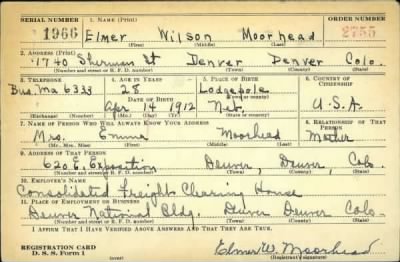 SERIAL NUMBER 1. NAME (Print) ORDER NUMBER
1966 Elmer Wilson Moorhead 2755
(First) (Middle) (Last)
2. ADDRESS (Print)
1740 Sherman St Denver Denver Colo.
(Number and street or R. F. D. number) (Town) (County) (State)
3. TELEPHONE 4. AGE IN YEARS 5. PLACE OF BIRTH 6. COUNTRY OF CITIZENSHIP
Bus. Ma 6333 28 Lodgepole
DATE OF BIRTH (Town or county)
Apr 14 1912 Neb. U.S.A.
(Exchange) (Number) (Mo.) (Day) (Yr.) (State or country)
7. NAME OF PERSON WHO WILL ALWAYS KNOW YOUR ADDRESS 8. RELATIONSHIP OF THAT PERSON
Mrs. Emma Moorhead Mother
(Mr., Mrs., Miss) (First) (Middle) (Last)
9. ADDRESS OF THAT PERSON
620 E. Exposition Denver, Denver, Colo.
(Number and street or R. F. D. number) (Town) (County) (State)
10. EMPLOYER'S NAME
Consolidated Freight Clearing House
11. PLACE OF EMPLOYMENT OR BUSINESS
Denver National Bldg. Denver Denver Colo.
(Number and street or R. F. D. number) (Town) (County) (State)
I AFFIRM THAT I HAVE VERIFIED ABOVE ANSWERS AND THAT THEY ARE TRUE.
REGISTRATION CARD
D. S. S. Form 1
Elmer W. Moorhead
(Registrant's signature)